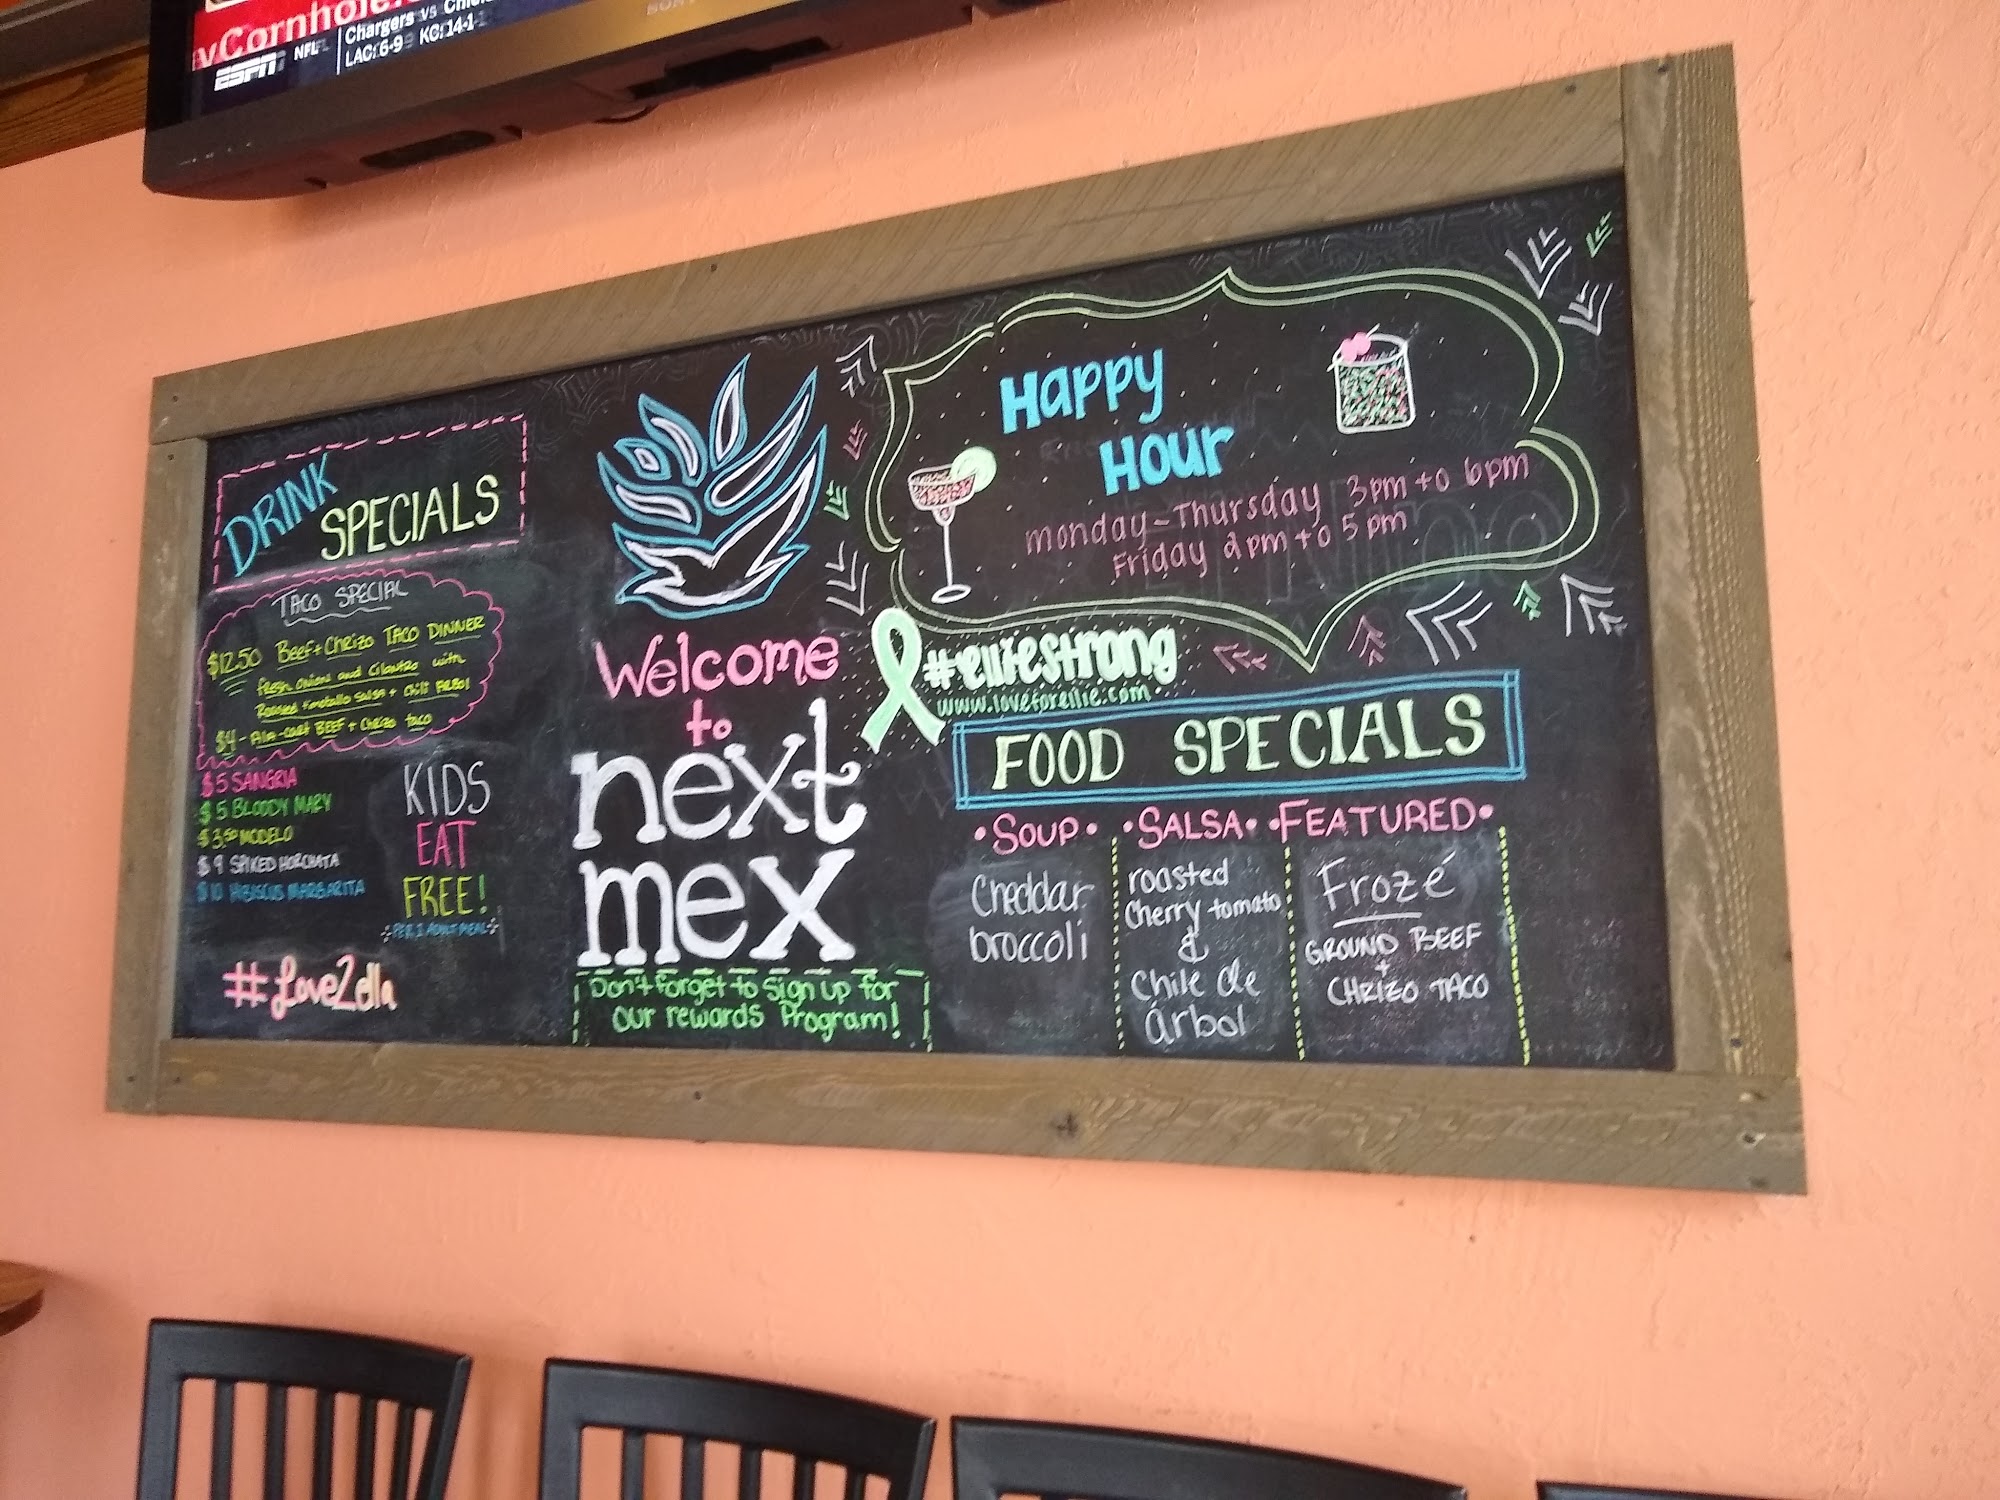 v.Cornhole
ESPN NFL
Chargers vs Chie
LAC:6-9 KC:14-1
SONY
DRINK
SPECIALS
TACO SPECIAL
$12.50 Beef + Chrizo TACO DINNER
fresh onion and cilantro with
Roasted tometallo salsa + chili ARBOL
$4 - Ala-cart BEEF + Chrizo taco
$5 SANGRIA
$5 BLOODY MARY
$3.50 MODELO
$9 SPIKED HORCHATA
$10 HIBISCUS MARGARITA
KIDS
EAT
FREE!
PER 1 ADULT MEAL
#LoveZella
Welcome
to
next
mex
Don't forget to sign up for
our rewards Program!
Happy
Hour
monday-Thursday 3pm to 6pm
Friday 2pm to 5pm
#elliestrong
www.loveforellie.com
FOOD SPECIALS
• SOUP •
Cheddar
broccoli
• SALSA •
roasted
Cherry tomato
&
Chile de
árbol
• FEATURED •
Frozé
GROUND BEEF
+
CHRIZO TACO